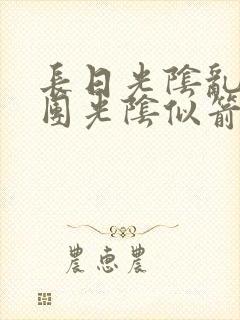 長日光陰亂
團光陰似箭
農惠農